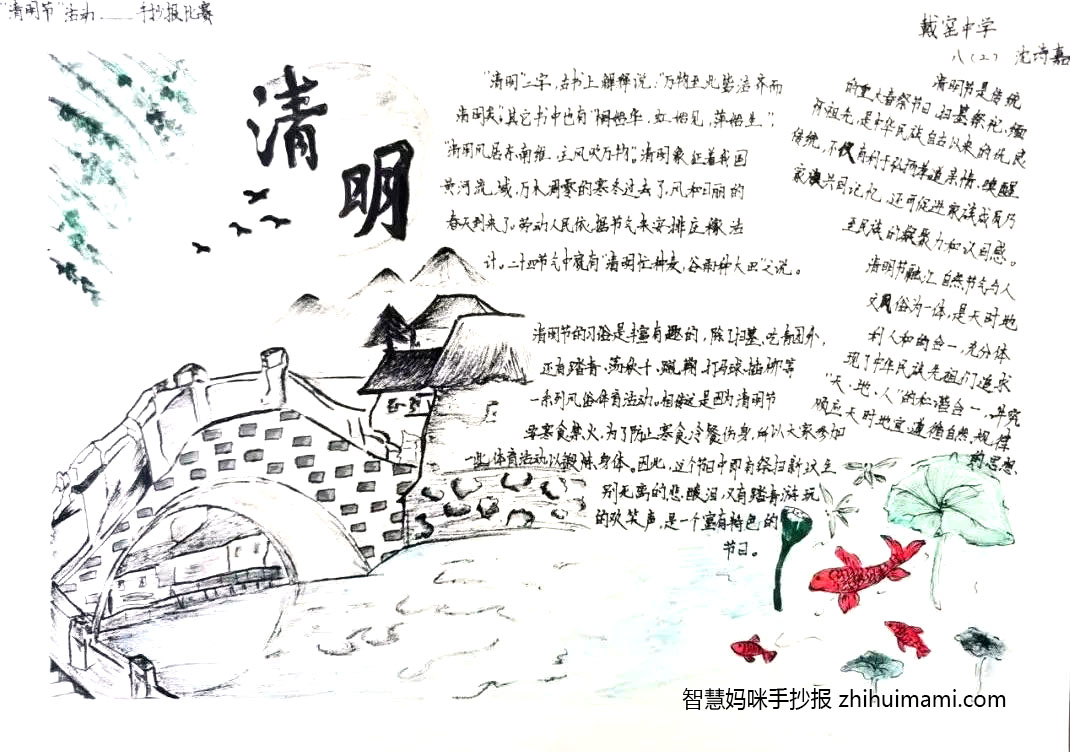 "清明节"活动——手抄报比赛
戴窑中学
八(2) 沈诗嘉
清明
"清明"二字,古书上解释说:"万物至此皆洁齐而
清明矣。"其它书中也有"桐始华,虹始见,萍始生"、
"清明风居东南维,主风吹万物"。清明象征着我国
黄河流域,万木凋零的寒冬过去了,风和日丽的
春天到来了。劳动人民依据节气来安排庄稼活
计。二十四节气中就有"清明忙种麦,谷雨种大田"之说。
清明节的习俗是丰富有趣的,除了扫墓、吃青团外,
还有踏青、荡秋千、蹴鞠、打马球、插柳等
一系列风俗体育活动。相传这是因为清明节
要寒食禁火,为了防止寒食冷餐伤身,所以大家参加
一些体育活动以锻炼身体。因此,这个节日中即有祭扫新坟生
别死离的悲酸泪,又有踏青游玩
的欢笑声,是一个富有特色的
节日。
清明节是传统
的重大春祭节日,扫墓祭祀、缅
怀祖先,是中华民族自古以来的优良
传统,不仅有利于弘扬孝道亲情、唤醒
家族共同记忆,还可促进家族成员乃
至民族的凝聚力和认同感。
清明节融汇自然节气与人
文风俗为一体,是天时地
利人和的合一,充分体
现了中华民族先祖们追求
"天、地、人"的和谐合一,讲究
顺应天时地宜、遵循自然规律
的思想
智慧妈咪手抄报 zhihuimami.com